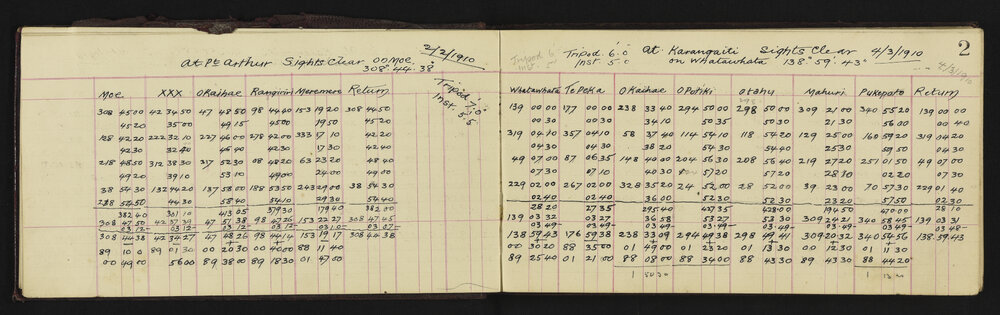 2/2/1910
At Pt Arthur Sights Clear on Moe.
308° 44' 38"
Tripod 7' 0"
Inst 5.5
Moe XXX O Raihae Rangiriri Meremere Return
308 45 00 42 34 50 47 48 50 98 44 40 153 19 20 308 44 50
45 20 35 00 49 15 45 00 19 50 45 20
128 42 20 222 32 10 227 46 00 278 42 00 333 17 10 42 20
42 30 32 40 46 40 42 30 17 30 42 40
218 48 50 312 38 30 317 52 30 08 48 20 63 23 20 48 40
49 20 39 10 53 10 49 00 24 00 49 00
38 54 30 132 44 20 137 58 00 188 53 50 243 29 00 38 54 30
54 50 44 30 58 40 54 10 29 30 54 40
382 40 301 10 413 05 379 30 179 40 382 00
308 47 50 42 37 39 47 51 38 98 47 26 153 22 27 308 47 45
03 12 03 12 03 12 03 12 03 10 03 07
308 44 38 42 34 27 47 48 26 98 44 14 153 19 17 308 44 38
89 10 0 89 01 30 00 20 30 00 40 00 88 11 40
00 49 00 56 00 89 38 00 89 18 30 01 47 00
2
Tripod 6' 0" At Karangaiti Sights Clear 4/3/1910
Inst 5.0 on Whatawhata 138° 59' 43"
Whatawhata Te Peka O Raihae O Potiki Otahu Mahuri Pukepoto Return
139 00 00 177 00 00 238 33 40 294 50 00 298 50 00 309 21 00 340 55 20 139 00 00
00 30 00 30 34 10 50 35 50 30 21 30 56 00 00 40
319 04 10 357 04 10 58 37 40 114 54 10 118 54 20 129 25 00 160 59 20 319 04 20
04 30 04 30 38 20 54 30 54 40 25 30 59 50 04 30
49 07 00 87 06 35 148 40 00 204 56 30 208 56 40 219 27 20 251 01 50 49 07 00
07 30 07 10 40 30 57 20 57 20 28 10 02 20 07 30
229 02 00 267 02 00 328 35 20 24 52 00 28 52 00 39 23 00 70 57 30 229 01 40
02 40 02 40 36 00 52 30 52 30 23 20 57 50 02 30
28 20 27 35 295 40 427 35 428 00 194 50 470 00 28 10
139 03 32 03 27 36 58 53 27 53 30 309 24 21 340 58 45 139 03 31
03 49 03 49 03 49 03 49 03 49 03 49 03 49 03 48
138 59 43 176 59 38 238 33 09 294 49 38 298 49 41 309 20 32 340 54 56 138 59 43
00 30 20 88 35 00 01 49 00 01 23 20 01 13 30 00 12 30 01 11 30
89 25 40 01 21 00 88 08 00 88 34 00 88 43 30 89 43 30 88 44 20